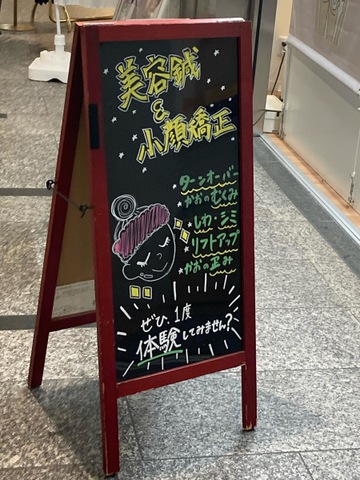 美容鍼
&
小顔矯正
ターンオーバー
かおのむくみ
しわ・シミ
リフトアップ
かおの歪み
ぜひ、1度
体験してみません?